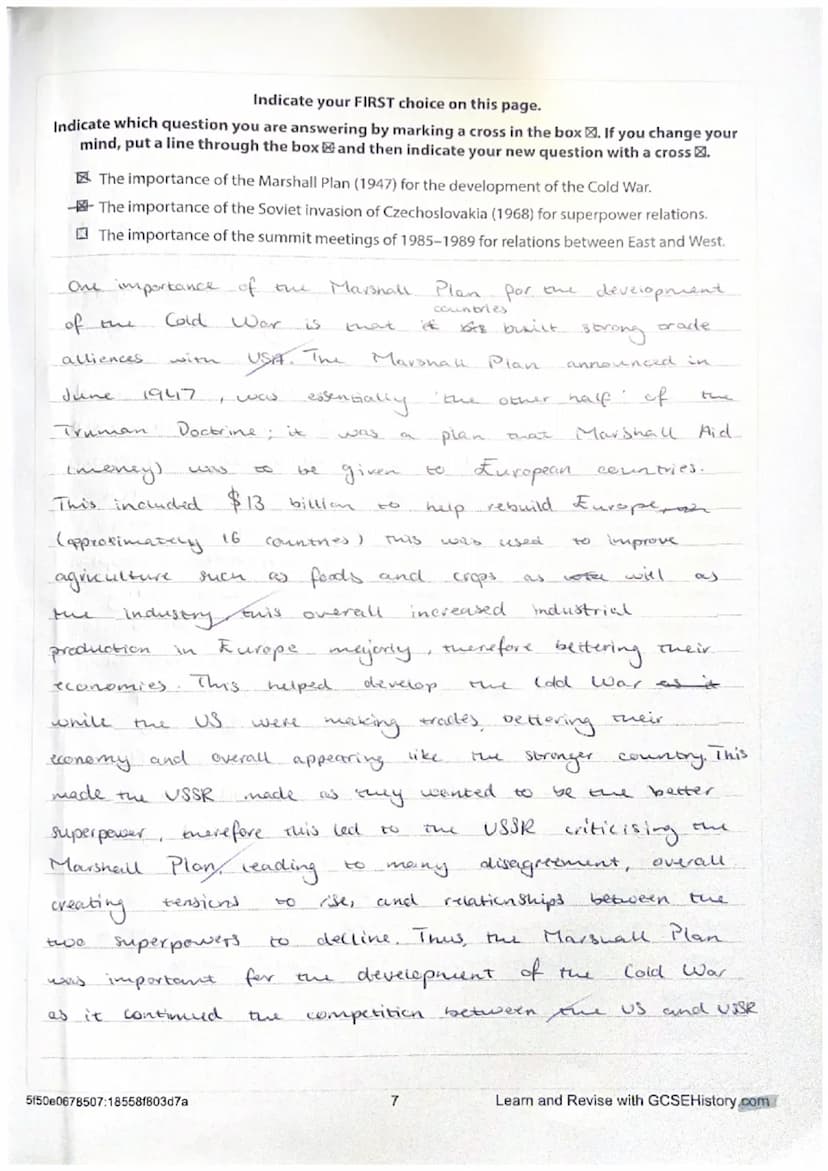 Indicate your FIRST choice on this page.
Indicate which question you are answering by marking a cross in the box ☒. If you change your
mind, put a line through the box ☒ and then indicate your new question with a cross ☒.
☒ The importance of the Marshall Plan (1947) for the development of the Cold War.
☒ The importance of the Soviet invasion of Czechoslovakia (1968) for superpower relations.
☐ The importance of the summit meetings of 1985–1989 for relations between East and West.
One importance of the Marshall Plan for the development
countries
of the Cold War is that it built strong trade
alliences with USA. The Marshall Plan announced in
June 1947, was essentially 'the other half' of the
Truman Doctrine; it was a plan that Marshall Aid
(money) was to be given to European countries.
This included $13 billion to help rebuild Europe
(approximately 16 countries) this was used to improve
agriculture such as foods and crops as will as
the industry, this overall increased industrial
production in Europe majorly, therefore bettering their
economies. This helped develop the Cold War as it
while the US were making trades, bettering their
economy and overall appearing like the stronger country. This
made the USSR made as they wanted to be the better
superpower, therefore this led to the USSR criticising the
Marshall Plan, leading to many disagreement, overall
creating tensions to rise, and relationships between the
two superpowers to decline. Thus, the Marshall Plan
was important for the development of the Cold War
as it continued the competition between the US and USSR
5f50e0678507:18558f803d7a
7
Learn and Revise with GCSEHistory.com